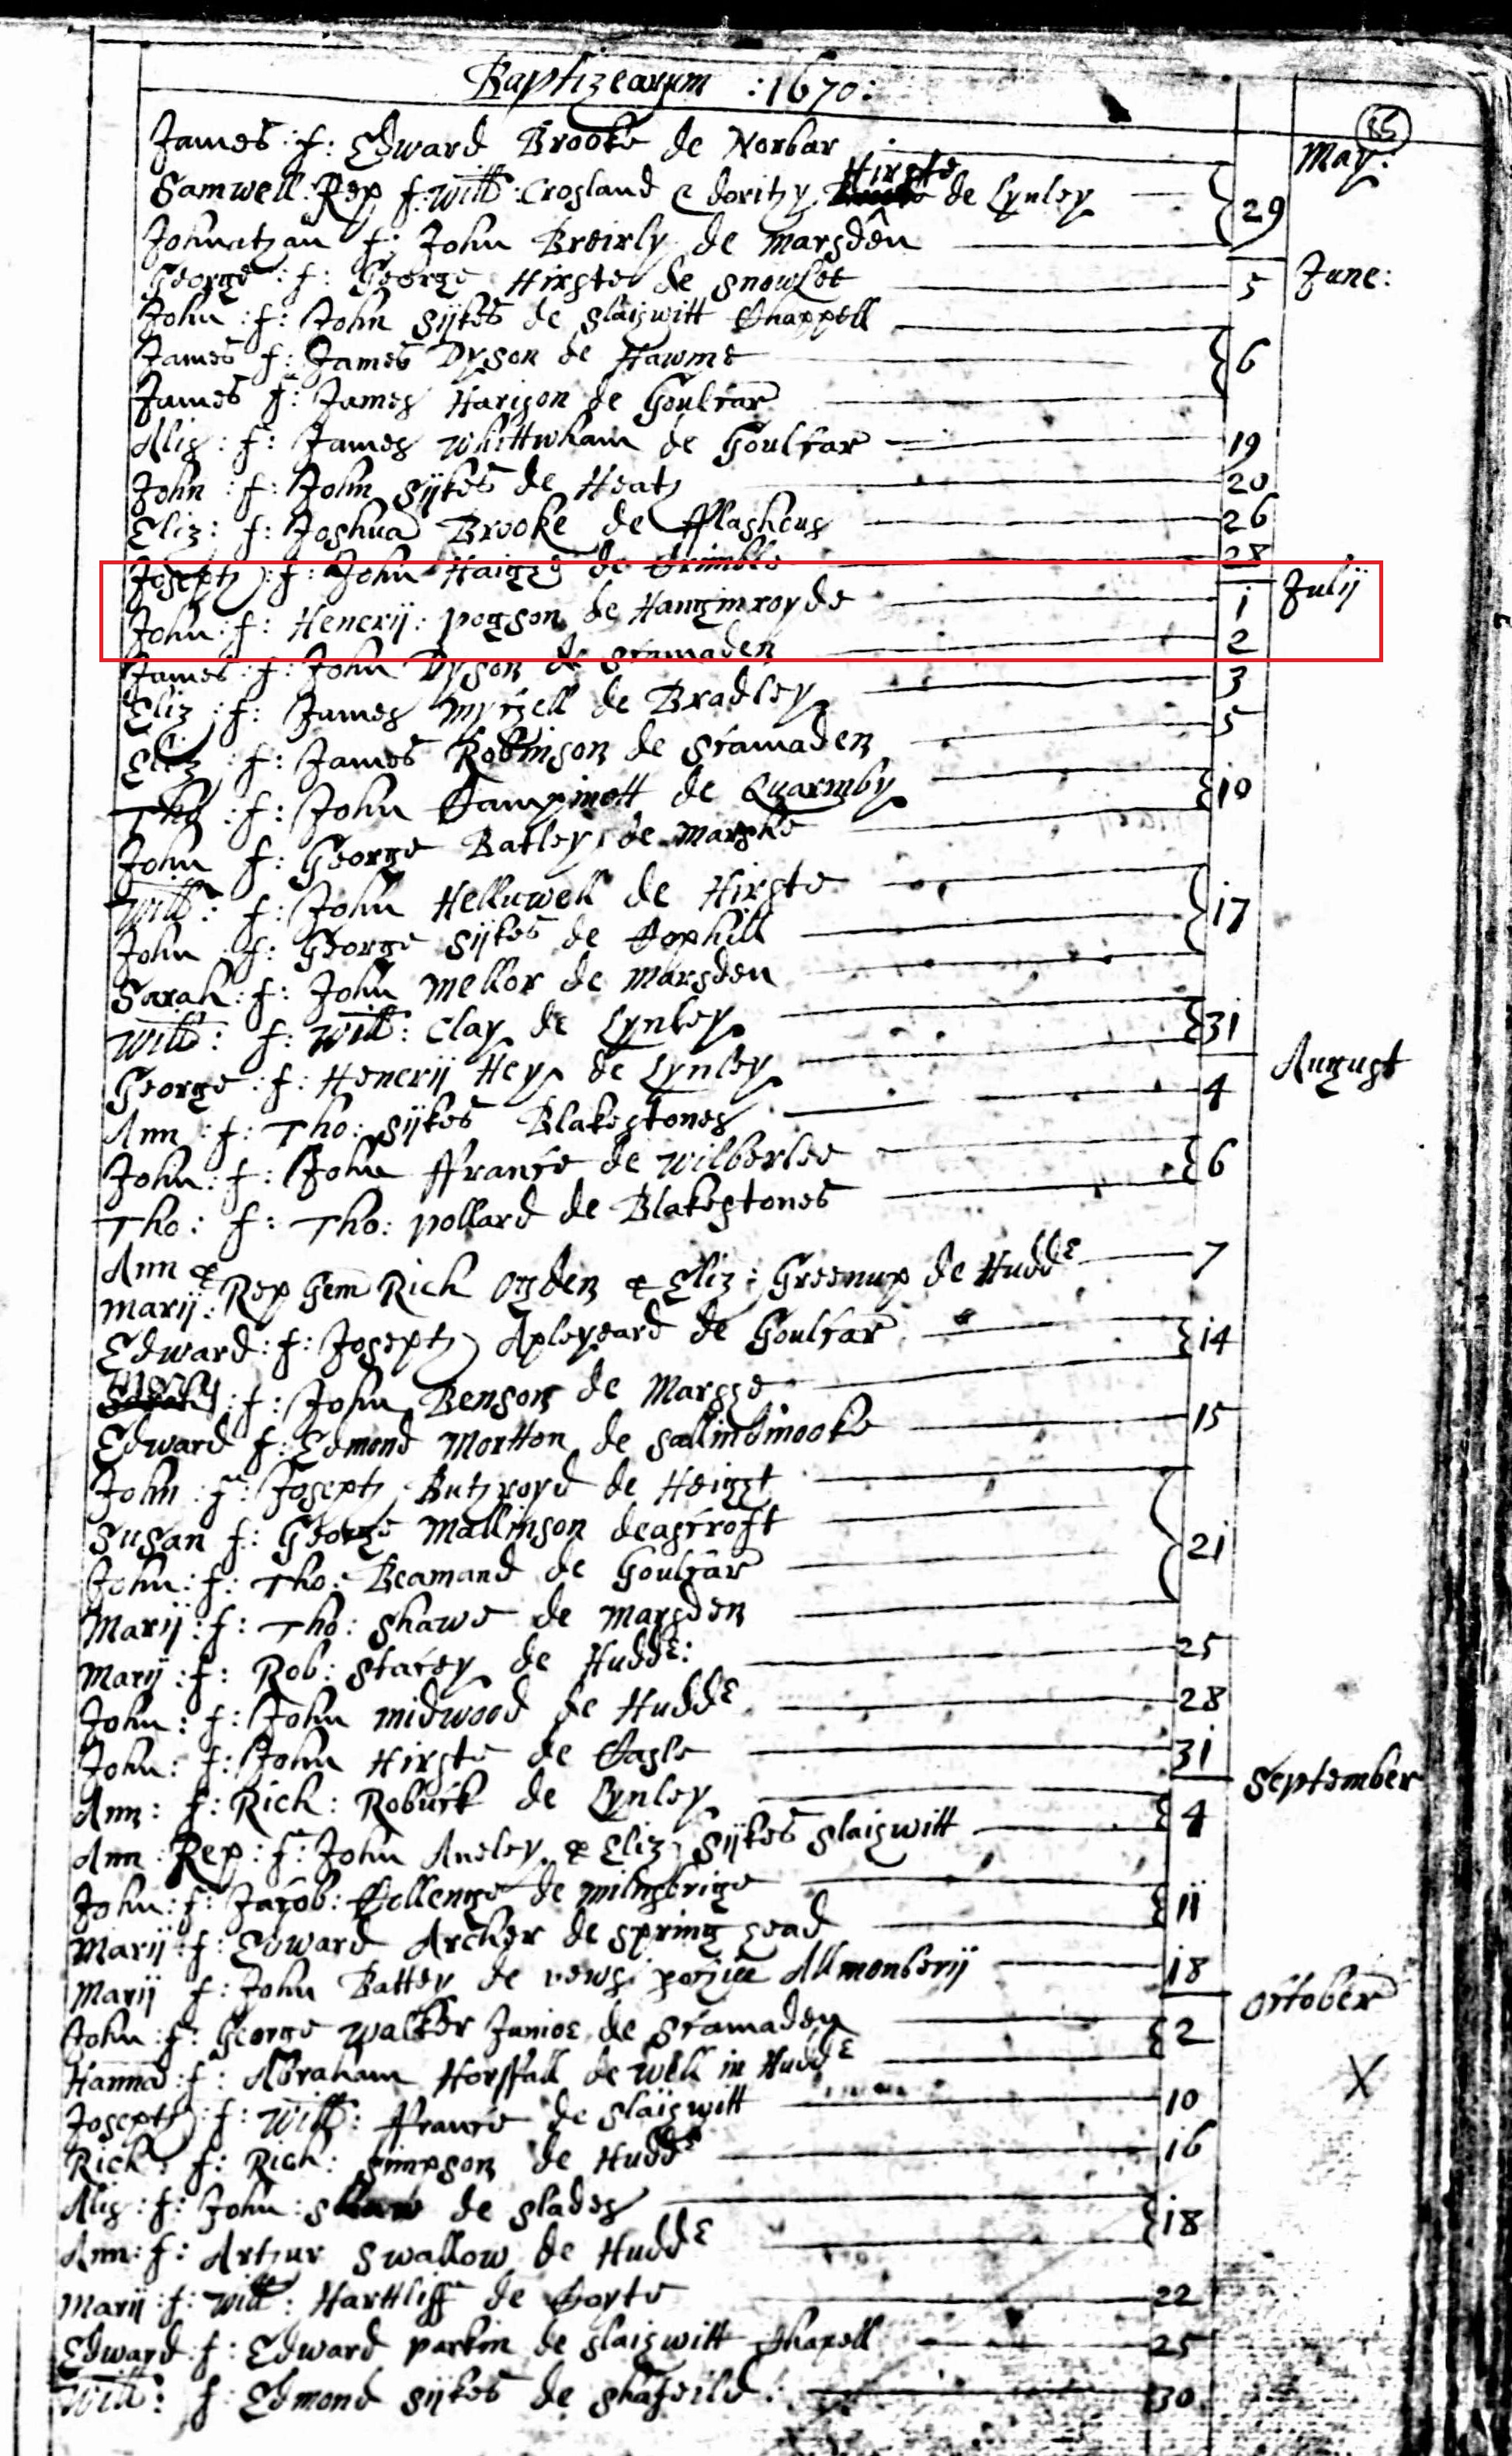 Baptizearum : 1670 :
85
James : f : Edward Brooke de Norbar May :
Hirste
Samwell : Rep f : Willm : Crosland & dorithy de Lynley 29
Johnathan f : John Breirly de Marsden
George : f : George Hirste de Snowlee 5 June :
John : f : John Sijkes de Slaigwitt Chappell
James f : James Dyson de Hawme 6
James f : James Harison de Goulcar
Alis : f : James Whittwham de Goulcar 19
John : f : John Sijkes de Heath 20
Eliz : f : Joshua Brooke de fflashous 26
Joseph : f : John Haigh de Crimble 28
John : f : Henerij : pogson de Hanginroyde i Julij
James : f : John Dyson de Scamaden 2
Eliz : f : James Myrhell de Bradley 3
Eliz : f : James Robinson de Scamaden 5
Tho : f : John de Quarmby i0
John f : George Batley de Marshe
Will : f : John Helliwell de Hirste
John : f : George Sijkes de Cophill i7
Sarah : f : John Mellor de Marsden
Will : f : Will : Clay de Lynley 3i
George : f : Henerij Hey de Lynley August
Ann : f : Tho : Sijkes Blakestones 4
John : f : John ffrance de Wilberlee 6
Tho : f : Tho : pollard de Blakestones
Ann &
Marij : Rep Gem Rich Ogden & Eliz : Greenup de Hudde 7
Edward : f : Joseph Apleyeard de Goulcar i4
Mary : f : John Benson de Marshe
Edward f : Edmond Mortton de i5
John : f : Joseph Buthroyd de Height
Susan f : George Mallinson deascroft
John : f : Tho : Beamand de Goulcar 2i
Marij : f : Tho : Shawe de Marsden
Marij : f : Rob : Stacey de Hudde : 25
John : f : John Midwood de Hudde 28
John : f : John Hirste de Casle 3i
Ann : f : Rich : Robuck de Lynley September
Ann : Rep : f : John Aneley & Eliz Sijkes Slaigwitt 4
John : f : Jacob : de Milnsbrige
Marij : f : Edward Archer de Spring head ii
Marij f : John Battey de Allmonberij i8
John : f : George Walker Junior de Scamaden October
Hanna : f : Abraham Horsfall de Well in Hudde 2
Joseph : f : Will : ffrance de Slaigwitt 10
Rich : f : Rich : Simpson de Hudde i6
Alis : f : John : de Slades
Ann : f : Arthur Swallow de Hudde i8
Marij : f : Will : Harttliff de Coyte 22
Edward : f : Edward parkin de Slaigwitt Chapell 25
Will : f : Edmond Sijkes de Shafeild : 30